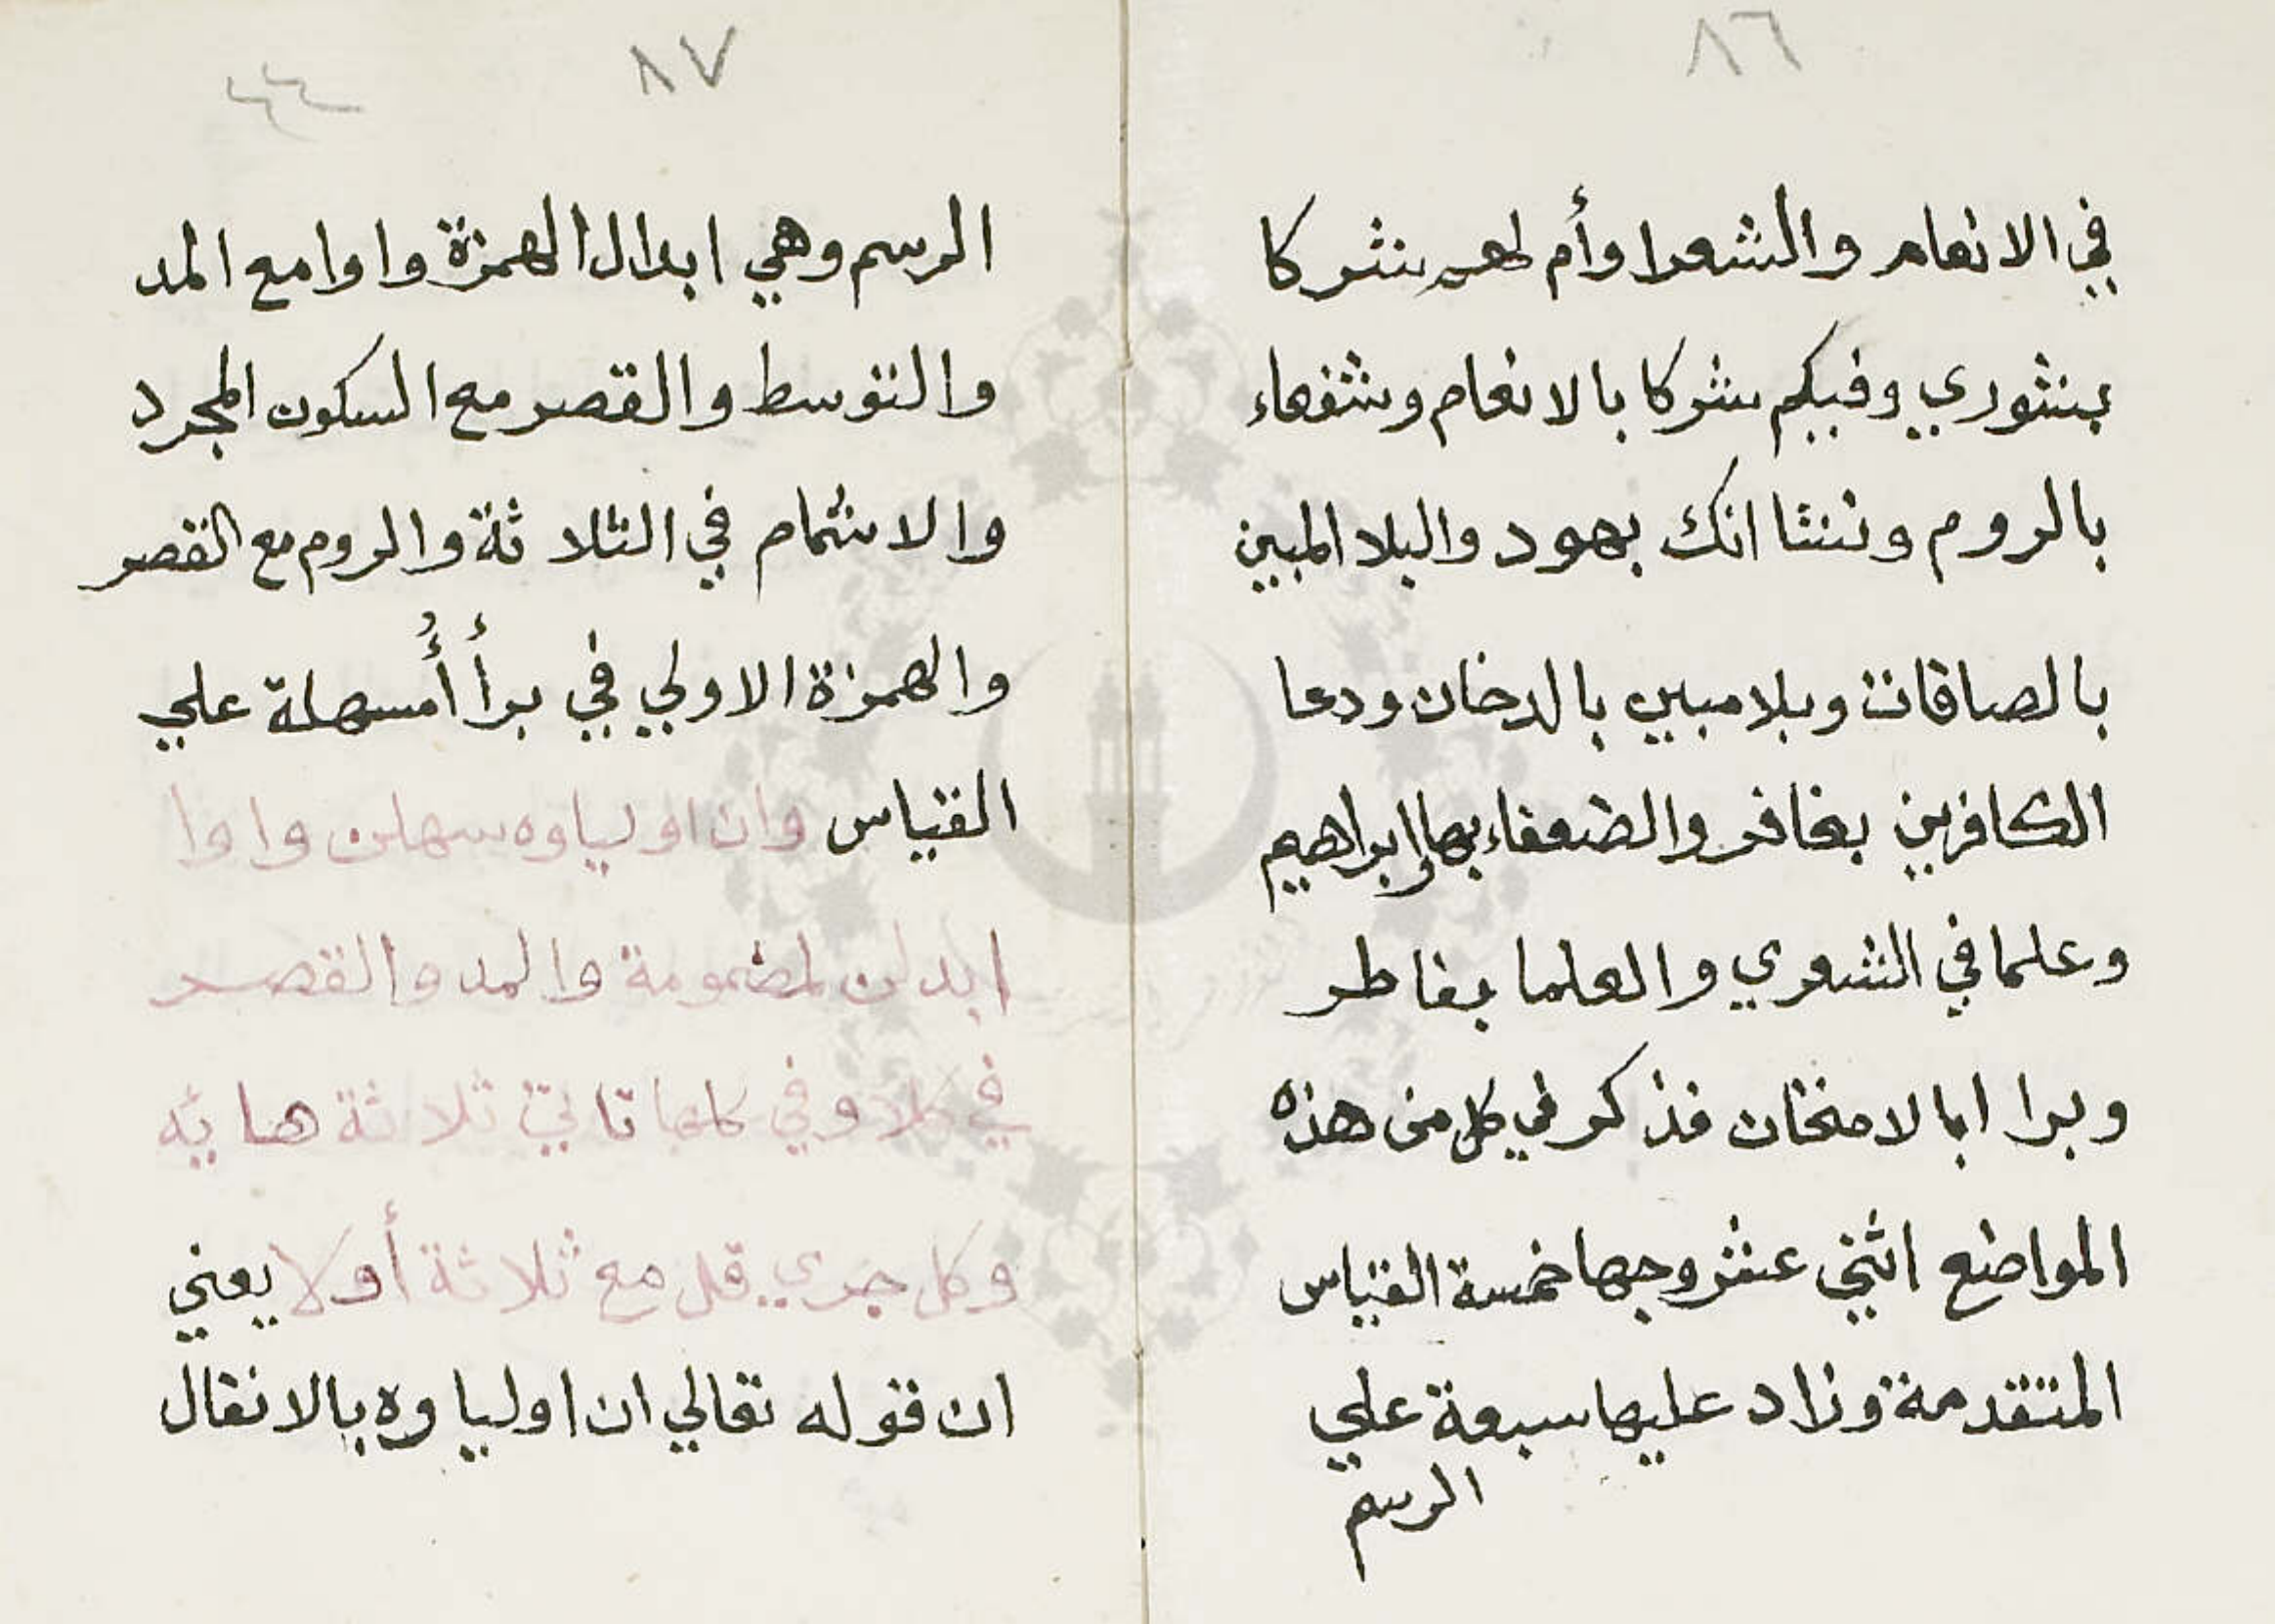 ٨٦
في الانعام والشعرا وأم لهم شركا
بشوري وفيكم شركا بالانعام وشفعاء
بالروم ونشا انك بهود والبلا المبين
بالصافات وبلا مبين بالدخان ودعا
الكافرين بغافر والضعفاء بها وإبراهيم
وعلما في الشعري والعلما بفاطر
وبرا ابالامتحان فذكر في كل من هذه
المواضع اثني عشر وجها خمسة القياس
المتقدمة وزاد عليها سبعة علي
الرسم
٨٧
٤٤
الرسم وهي ابدال الهمزة واوا مع المد
والتوسط والقصر مع السكون المجرد
والاشمام في الثلاثة والروم مع القصر
والهمزة الاولي في برأ أُمسهلة علي
القياس وان اولياوه سهلن واوا
ابدلن لمضمومة والمد والقصر
في كلا وفي كلما تاتي ثلاثة هايه
وكل جري قل مع ثلاثة أولا يعني
ان قوله تعالي ان اولياوه بالانفال